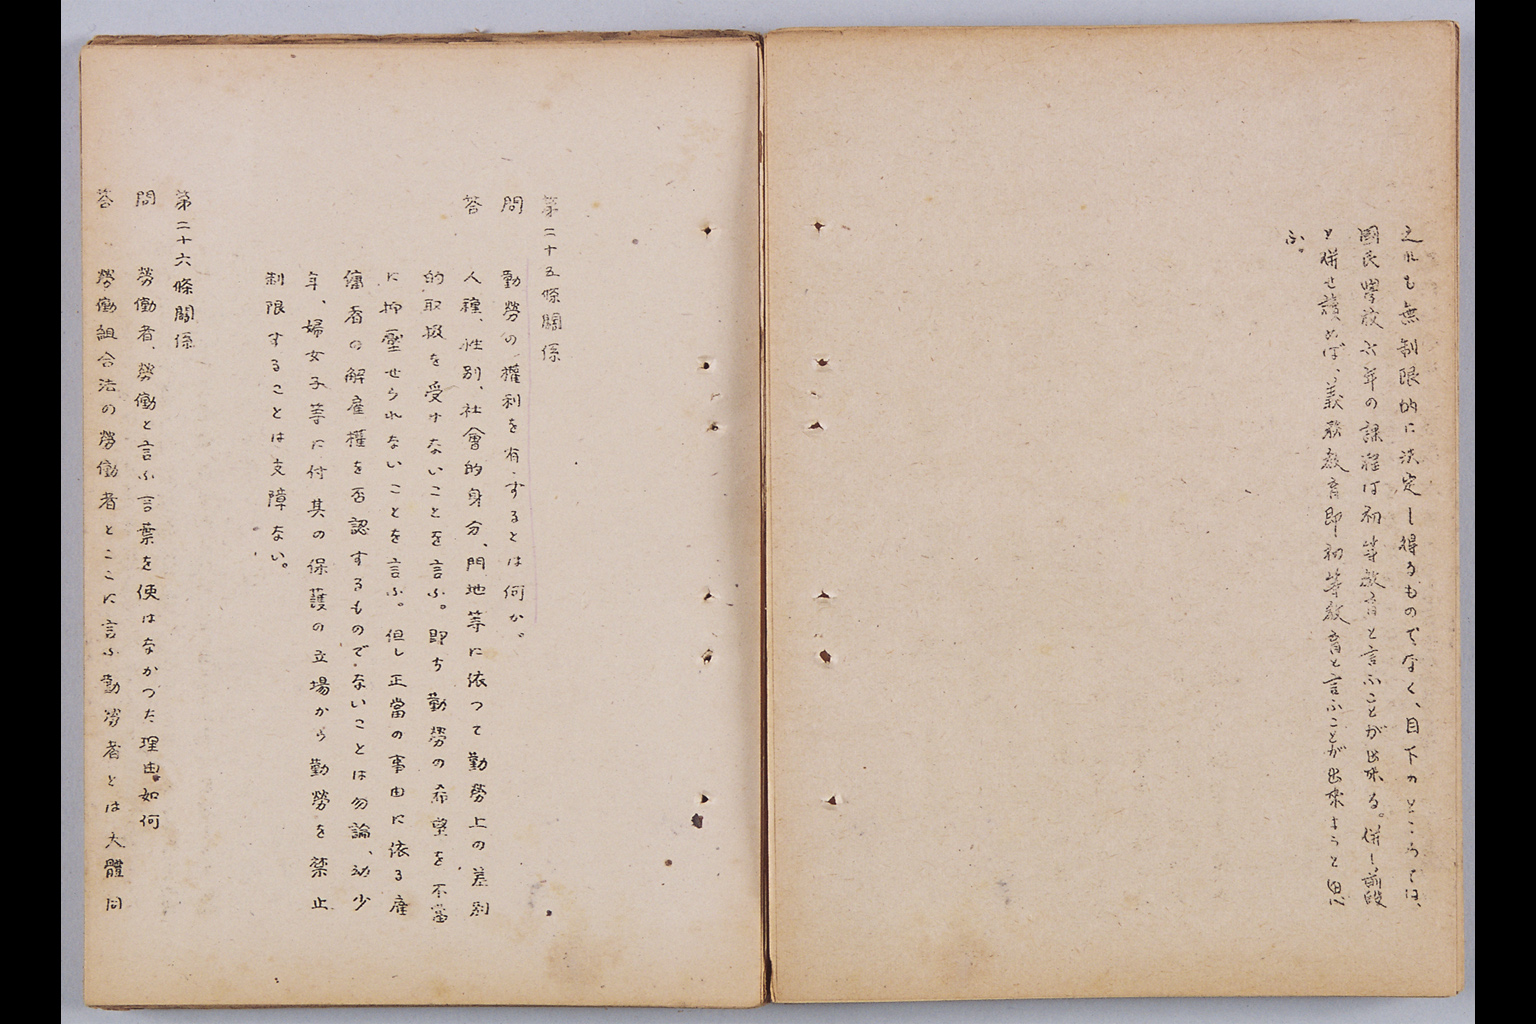 之れも無制限的に決定し得るものでなく、目下のところでは、
國民學校六年の課程は初等教育と言ふことが出來る。併し前段
と併せ讀めば、義務教育即初等教育と言ふことが出來ようと思
ふ。
第二十五條關係
問 勤勞の權利を有するとは何か。
答 人種、性別、社會的身分、門地等に依つて勤勞上の差別
的取扱を受けないことを言ふ。即ち勤勞の希望を不當
に抑壓せられないことを言ふ。但し正當の事由に依る雇
傭者の解雇權を否認するものでないことは勿論、幼少
年、婦女子等に付其の保護の立場から勤勞を禁止
制限することは支障ない。
第二十六條關係
問 勞働者、勞働と言ふ言葉を使はなかつた理由如何
答 勞働組合法の勞働者とここに言ふ勤勞者とは大體同